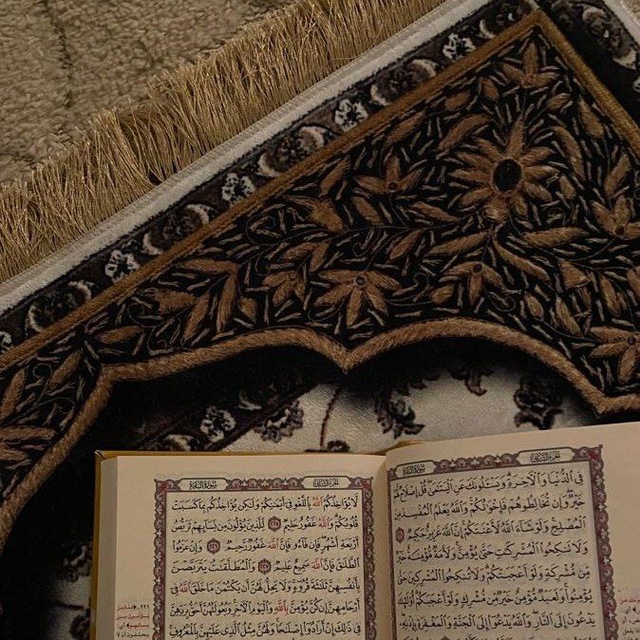 الجزء الثاني سورة البقرة
فِي الدُّنْيَا وَالْآخِرَةِ وَيَسْأَلُونَكَ عَنِ الْيَتَامَىٰ قُلْ إِصْلَاحٌ لَّهُمْ
خَيْرٌ وَإِن تُخَالِطُوهُمْ فَإِخْوَانُكُمْ وَاللَّهُ يَعْلَمُ الْمُفْسِدَ مِنَ
الْمُصْلِحِ وَلَوْ شَاءَ اللَّهُ لَأَعْنَتَكُمْ إِنَّ اللَّهَ عَزِيزٌ حَكِيمٌ ٢٢٠
وَلَا تَنكِحُوا الْمُشْرِكَاتِ حَتَّىٰ يُؤْمِنَّ وَلَأَمَةٌ مُّؤْمِنَةٌ خَيْرٌ
مِّن مُّشْرِكَةٍ وَلَوْ أَعْجَبَتْكُمْ وَلَا تُنكِحُوا الْمُشْرِكِينَ حَتَّىٰ
يُؤْمِنُوا وَلَعَبْدٌ مُّؤْمِنٌ خَيْرٌ مِّن مُّشْرِكٍ وَلَوْ أَعْجَبَكُمْ أُولَٰئِكَ
يَدْعُونَ إِلَى النَّارِ وَاللَّهُ يَدْعُو إِلَى الْجَنَّةِ وَالْمَغْفِرَةِ بِإِذْنِهِ
الجزء الثاني سورة البقرة
لَّا يُؤَاخِذُكُمُ اللَّهُ بِاللَّغْوِ فِي أَيْمَانِكُمْ وَلَٰكِن يُؤَاخِذُكُم بِمَا كَسَبَتْ
قُلُوبُكُمْ وَاللَّهُ غَفُورٌ حَلِيمٌ ٢٢٥ لِّلَّذِينَ يُؤْلُونَ مِن نِّسَائِهِمْ تَرَبُّصُ
أَرْبَعَةِ أَشْهُرٍ فَإِن فَاءُوا فَإِنَّ اللَّهَ غَفُورٌ رَّحِيمٌ ٢٢٦ وَإِنْ عَزَمُوا
الطَّلَاقَ فَإِنَّ اللَّهَ سَمِيعٌ عَلِيمٌ ٢٢٧ وَالْمُطَلَّقَاتُ يَتَرَبَّصْنَ
بِأَنفُسِهِنَّ ثَلَاثَةَ قُرُوءٍ وَلَا يَحِلُّ لَهُنَّ أَن يَكْتُمْنَ مَا خَلَقَ اللَّهُ فِي
أَرْحَامِهِنَّ إِن كُنَّ يُؤْمِنَّ بِاللَّهِ وَالْيَوْمِ الْآخِرِ وَبُعُولَتُهُنَّ أَحَقُّ بِرَدِّهِنَّ
فِي ذَٰلِكَ إِنْ أَرَادُوا إِصْلَاحًا وَلَهُنَّ مِثْلُ الَّذِي عَلَيْهِنَّ بِالْمَعْرُوفِ